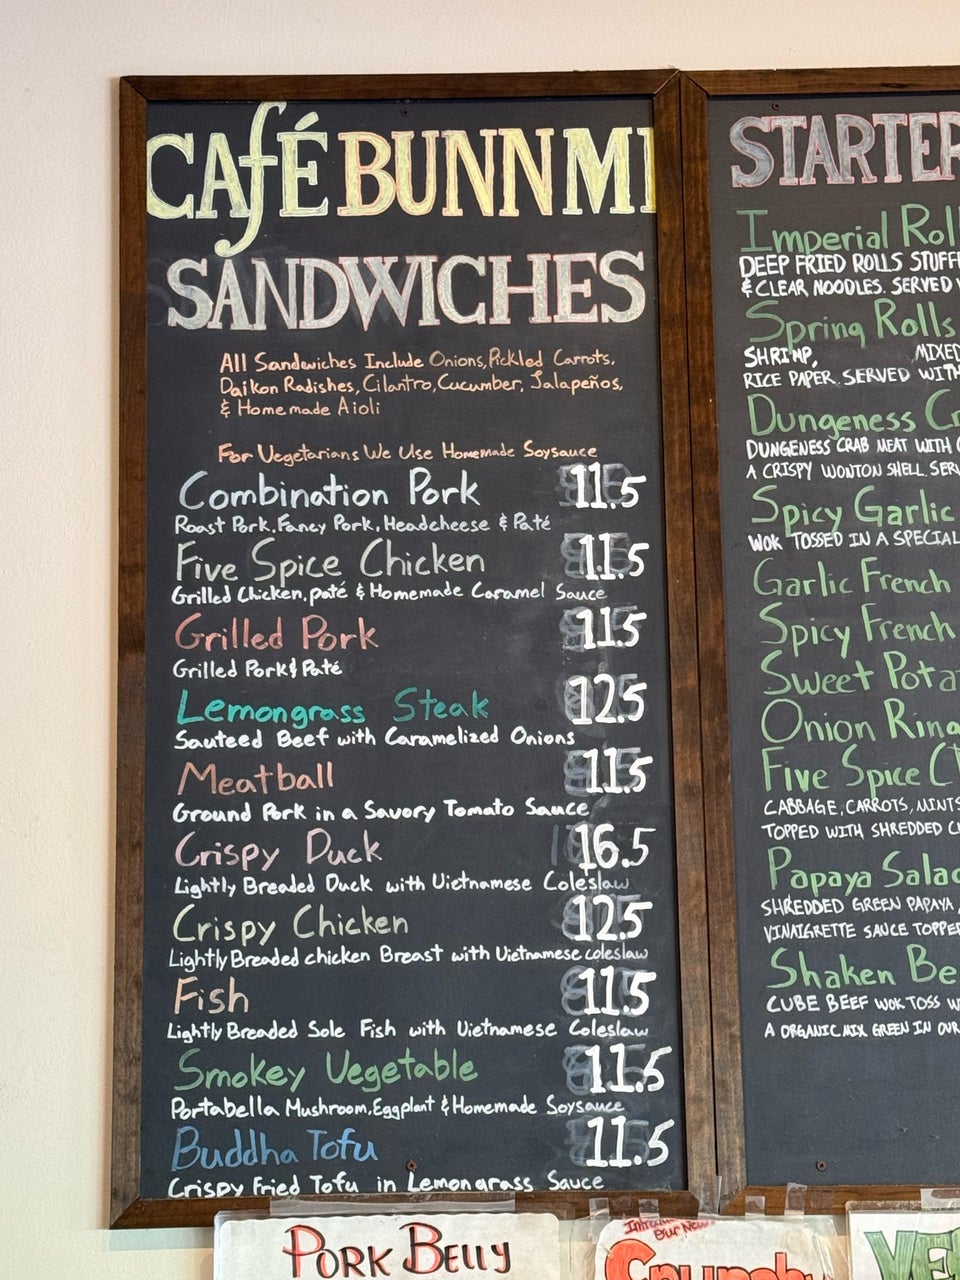 CAfÉ BUNN MI
SANDWICHES
All Sandwiches Include Onions, Pickled Carrots,
Daikon Radishes, Cilantro, Cucumber, Jalapeños,
& Homemade Aioli
For Vegetarians We Use Homemade Soysauce
Combination Pork 11.5
Roast Pork, Fancy Pork, Headcheese & Paté
Five Spice Chicken 11.5
Grilled Chicken, paté & Homemade Caramel Sauce
Grilled Pork 11.5
Grilled Pork & Paté
Lemongrass Steak 12.5
Sauteed Beef with Caramelized Onions
Meatball 11.5
Ground Pork in a Savory Tomato Sauce
Crispy Duck 16.5
Lightly Breaded Duck with Vietnamese Coleslaw
Crispy Chicken 12.5
Lightly Breaded chicken Breast with Vietnamese coleslaw
Fish 11.5
Lightly Breaded Sole Fish with Vietnamese Coleslaw
Smokey Vegetable 11.5
Portabella Mushroom, Eggplant & Homemade Soysauce
Buddha Tofu 11.5
Crispy Fried Tofu in Lemongrass Sauce
STARTER
Imperial Roll
DEEP FRIED ROLLS STUFF
& CLEAR NOODLES. SERVED
Spring Rolls
SHRIMP, MIXED
RICE PAPER. SERVED WITH
Dungeness Cr
DUNGENESS CRAB MEAT WITH
A CRISPY WONTON SHELL SER
Spicy Garlic
WOK TOSSED IN A SPECIAL
Garlic French
Spicy French
Sweet Pota
Onion Ring
Five Spice C
CABBAGE, CARROTS, MINTS
TOPPED WITH SHREDDED
Papaya Salad
SHREDDED GREEN PAPAYA,
VINAIGRETTE SAUCE TOPPED
Shaken Be
CUBE BEEF WOK TOSS
A ORGANIC MIX GREEN IN OUR
PORK BELLY
Our New
Crunchy
VE